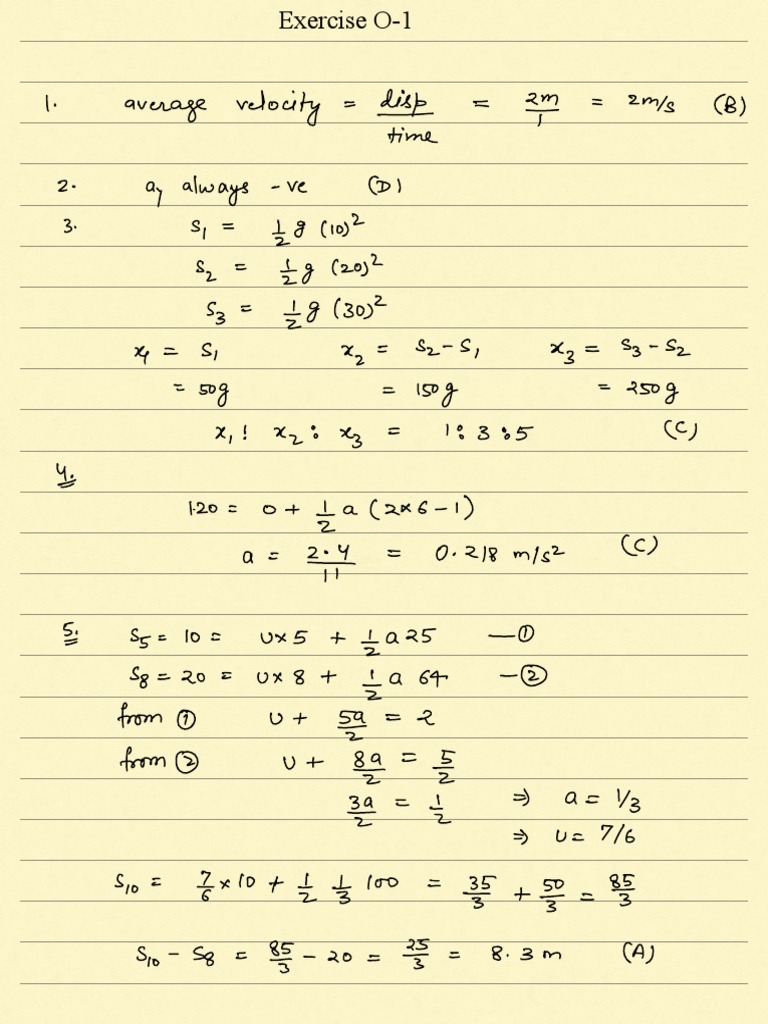 Exercise O-1
1. average velocity = disp/time = 2m/1 = 2m/s (B)
2. a, always -ve (D)
3. S₁ = 1/2 g (10)²
S₂ = 1/2 g (20)²
S₃ = 1/2 g (30)²
x₁ = S₁ x₂ = S₂ - S₁ x₃ = S₃ - S₂
= 50g = 150g = 250g
x₁ : x₂ : x₃ = 1 : 3 : 5 (C)
4.
1.20 = 0 + 1/2 a (2×6-1)
a = 2.4/11 = 0.218 m/s² (C)
5. S₅ = 10 = u×5 + 1/2 a 25 —①
S₈ = 20 = u×8 + 1/2 a 64 —②
from ① u + 5a/2 = 2
from ② u + 8a/2 = 5/2
3a/2 = 1/2 ⇒ a = 1/3
⇒ u = 7/6
S₁₀ = 7/6 × 10 + 1/2 1/3 100 = 35/3 + 50/3 = 85/3
S₁₀ - S₈ = 85/3 - 20 = 25/3 = 8.3 m (A)